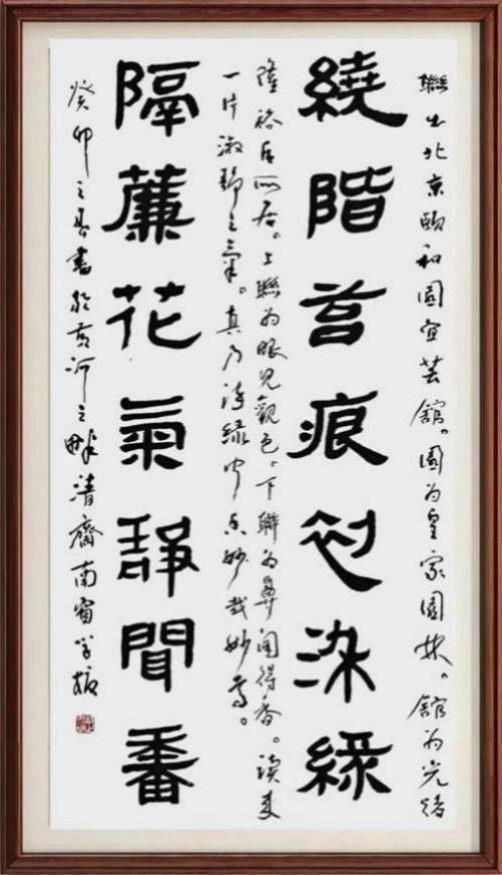 聯出北京頤和園宜芸館。園為皇家園林。館為光緒
繞階苔痕初染綠
隆裕后所居。上聯為眼見觀色、下聯為鼻聞得香。讀來
一片淑靜之氣。真乃詩緣中妙哉妙
隔簾花氣靜聞香
癸卯之春書於黃河之畔清齋南窗學振